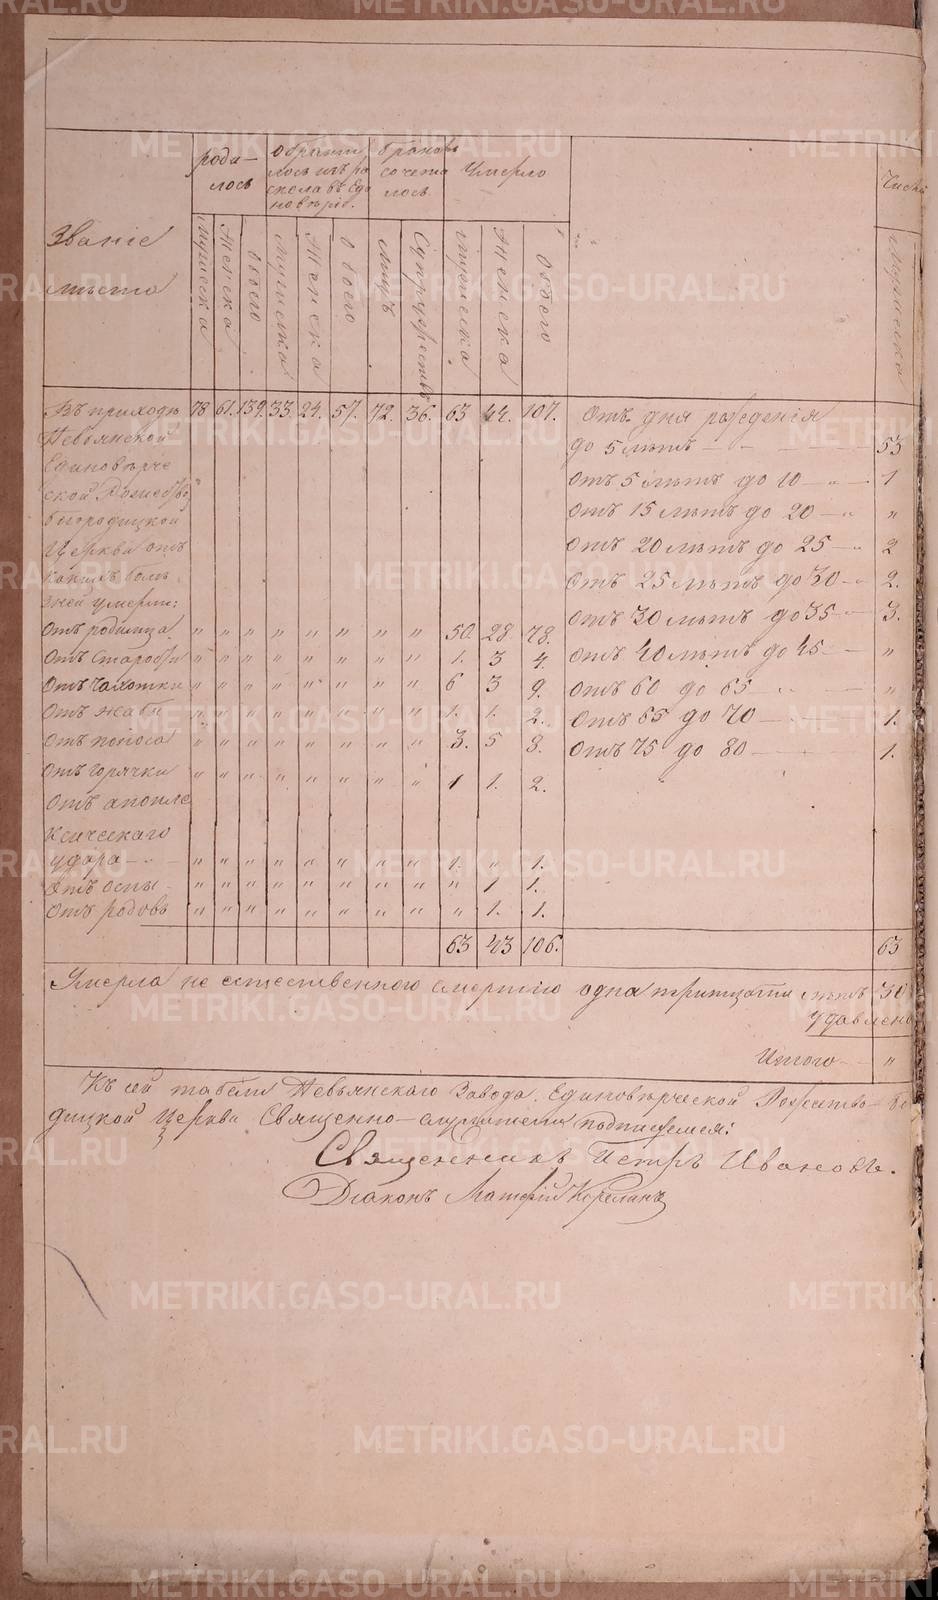 METRIKI.GASO-URAL.RU
роди- лось
обрати лось изъ ра скола въ Еди новѣріе.
браковъ сочета лось.
Умерло
Число
Званіе мѣста
Мужеска Женска Обоего Мужеска Женска Обоего Лицъ Супружествъ Мужеска Женска Обоего Мужеска
Въ приходѣ 78 61. 139. 33. 24. 57. 72. 36. 63 44. 107.
Невьянской
Единовѣрче
ской Рождество
богородицкой
Церкви отъ
какихъ болѣ
зней умерли:
Отъ родимца. " " " " " " " " 50. 28. 78.
Отъ Старости " " " " " " " " 1. 3 4.
Отъ Чахотки " " " " " " " " 6 3 9.
Отъ жабы " " " " " " " " 1. 1. 2.
Отъ поноса " " " " " " " " 3. 5 8.
Отъ горячки " " " " " " " " 1 1. 2.
Отъ апопле
ксическаго
удара " " " " " " " " 1. " 1.
Отъ оспы " " " " " " " " " 1 1.
Отъ родовъ " " " " " " " " " 1. 1.
63 43 106.
Отъ дня рожденія
до 5 лѣтъ 53
Отъ 5 лѣтъ до 10 1
Отъ 15 лѣтъ до 20 "
Отъ 20 лѣтъ до 25 2
Отъ 25 лѣтъ до 30 2.
Отъ 30 лѣтъ до 35 3.
Отъ 40 лѣтъ до 45 "
Отъ 60 до 65 "
Отъ 65 до 70 1.
Отъ 75 до 80 1.
63
Умерла не естественною смертію одна тритцати лѣтъ 30
удавлена
Итого "
Къ сей табели Невьянскаго Завода Единовѣрческой Рожество-бо
дицкой Церкви Священно-служители подписуемся:
Священникъ Петръ Ивановъ.
Діаконъ